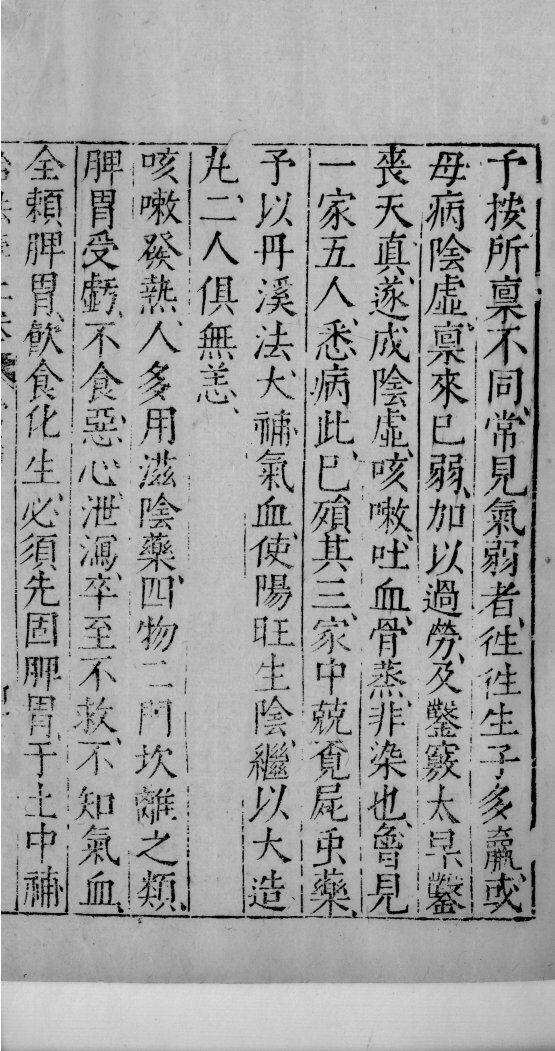 予按所禀不同、常見氣弱者、徃徃生子多羸、或
母病陰虛、禀來已弱、加以過勞、及鑿竅太早、鑿
喪天真、遂成陰虛、咳嗽、吐血、骨蒸、非染也、曾見
一家五人、悉病此、已殞其三、家中競覓屍虫藥、
予以丹溪法、大補氣血、使陽旺生陰、繼以大造
丸、二人俱無恙、
咳嗽發熱、人多用滋陰藥、四物二門坎離之類、
脾胃受虧、不食惡心、泄瀉、卒至不救、不知氣血、
全賴脾胃、飲食化生、必須先固脾胃、于土中補